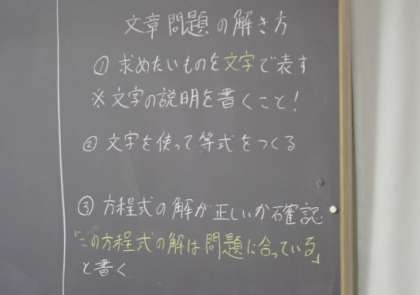 文章問題の解き方
① 求めたいものを文字で表す
※文字の説明を書くこと!
② 文字を使って等式をつくる
③ 方程式の解が正しいか確認
「この方程式の解は問題に合っている」
と書く